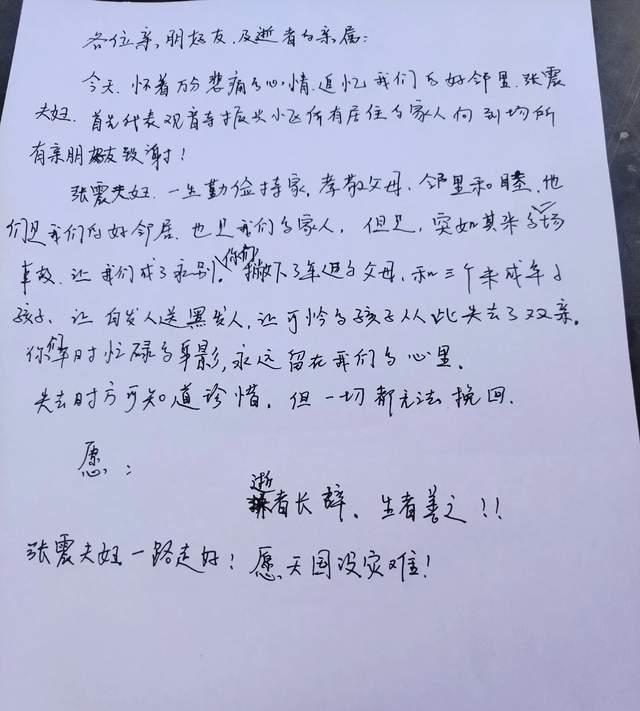 各位亲朋好友,及逝者的亲属:
今天.怀着万分悲痛的心情.追忆我们的好邻里.张震
夫妇.首先代表观音寺振兴小区所有居住的家人向到场所
有亲朋好友致谢!
张震夫妇.一生勤俭持家.孝敬父母.邻里和睦.他
们是我们的好邻居.也是我们的家人.但是,突如其来的一场
事故.让我们成了永别。你们撇下了年迈的父母,和三个未成年的
孩子.让白发人送黑发人,让可怜的孩子从此失去了双亲。
你们平时忙碌的身影,永远留在我们的心里。
失去时方可知道珍惜.但一切都无法挽回.
愿:
逝者长辞、生者善之!!
张震夫妇一路走好!愿天国没灾难!